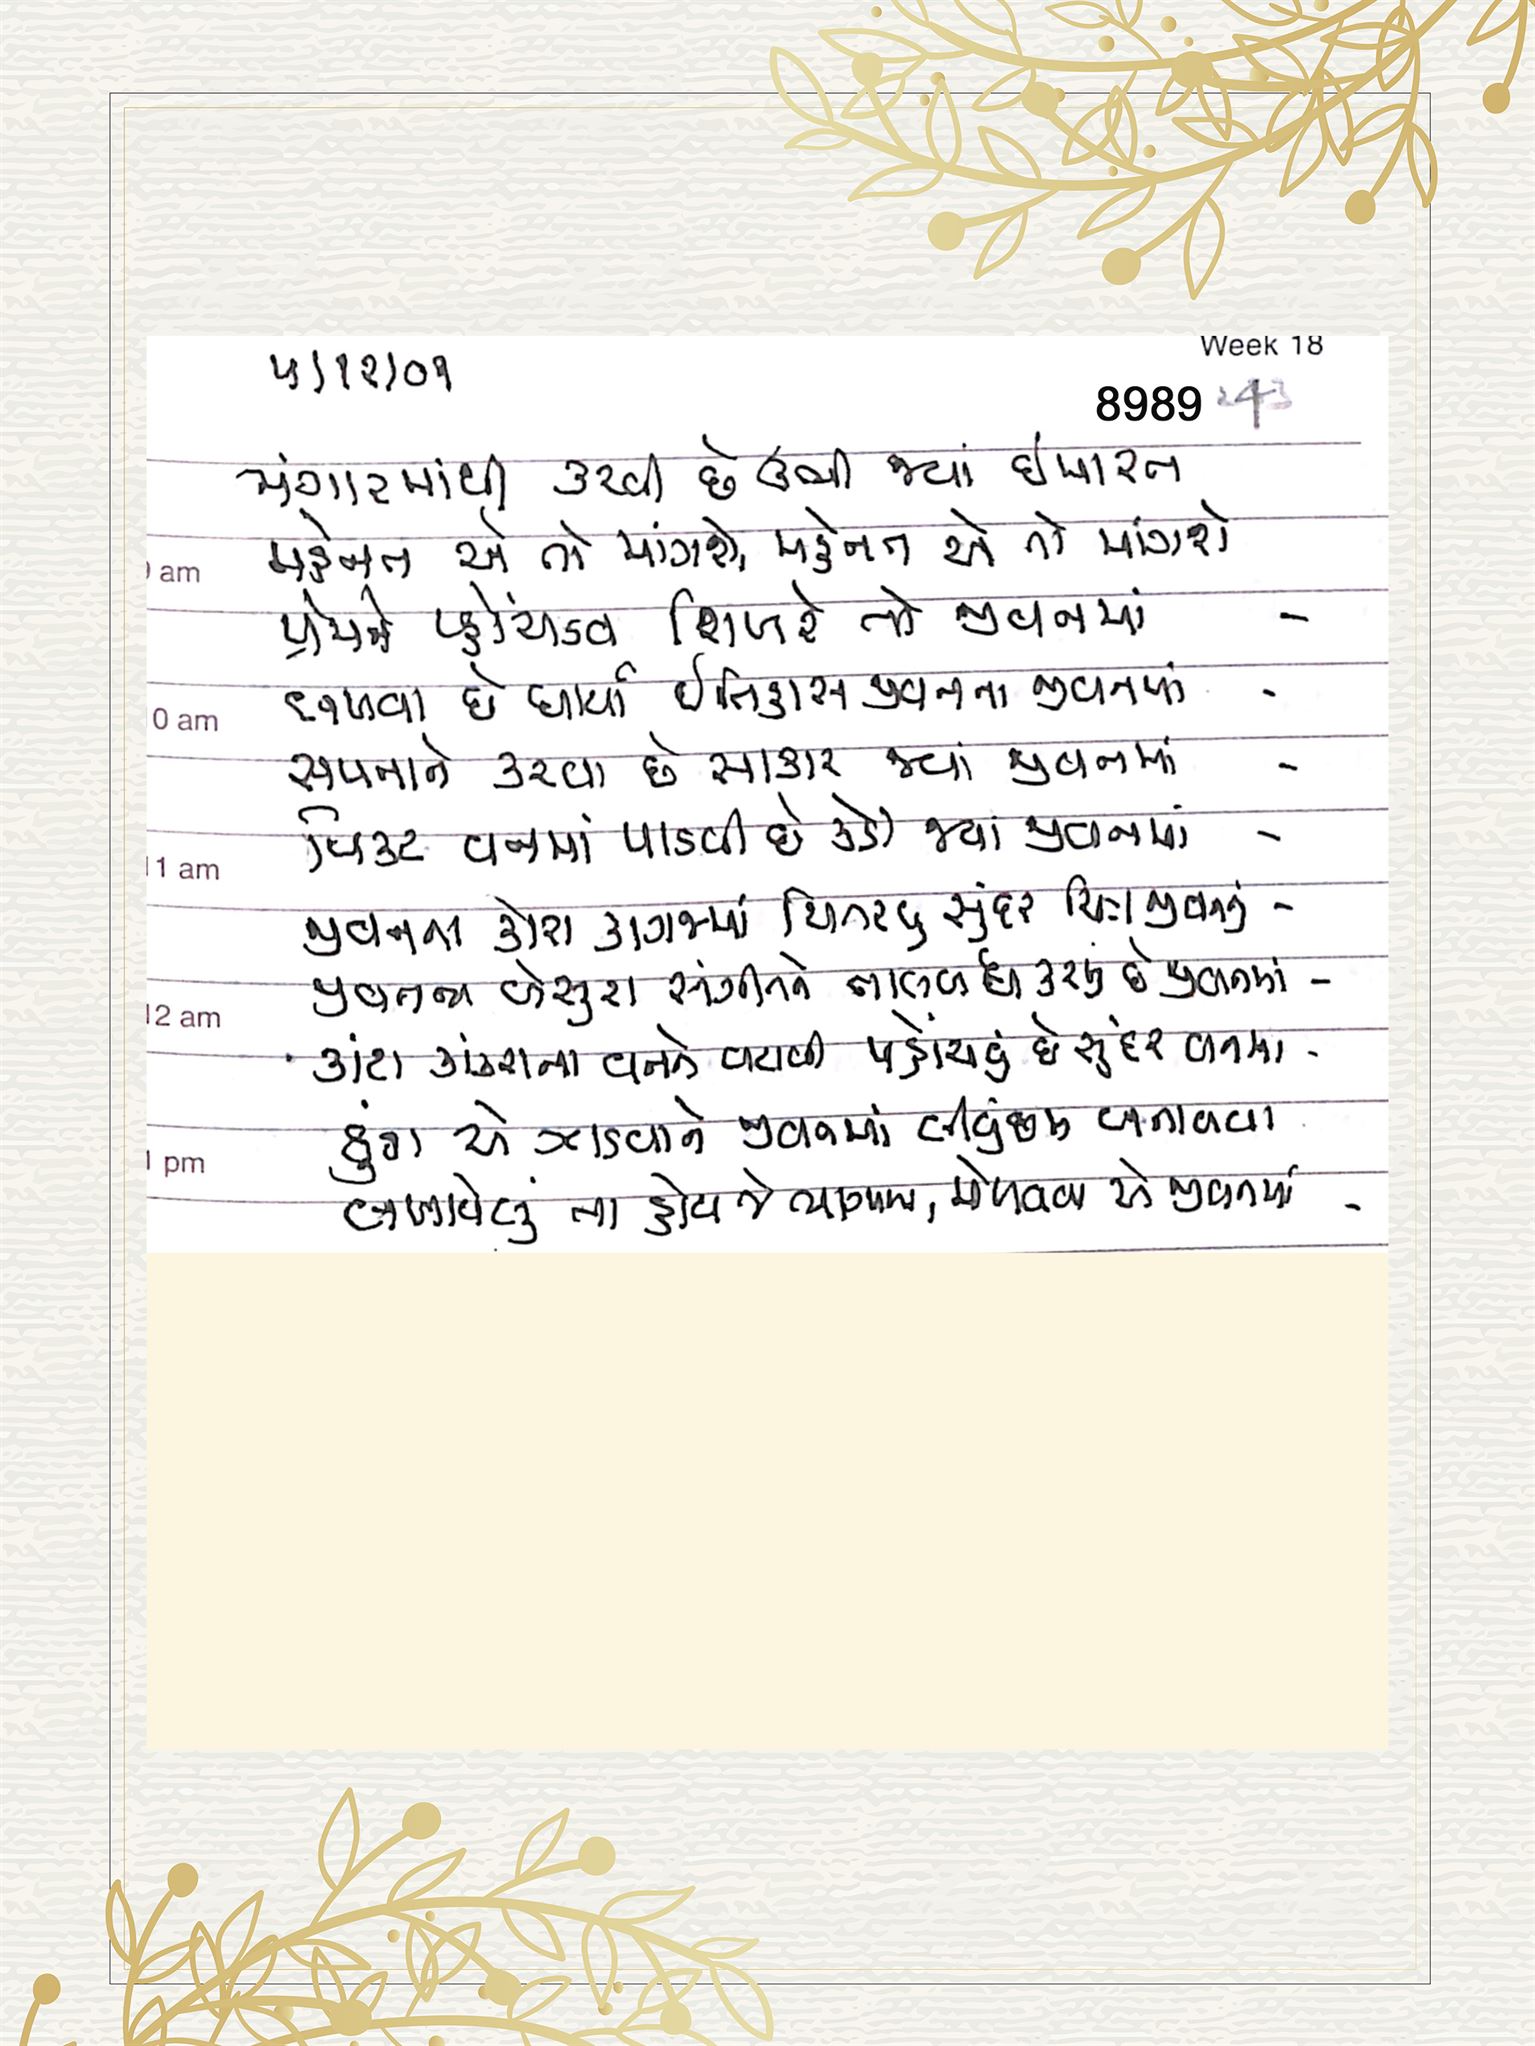 Week 18
૫/૧૨/૦૧
8989
ભંગારમાંથી કરવી છે ઊભી જ્યાં ઇમારત
મહેનત એ તો માંગશે, મહેનત એ તો માંગશે
પ્રેમને પ્હોંચાડવ શિખરે તો જીવનમાં -
છે ધાર્યા ઈતિહાસ જીવનના જીવનમાં -
સપનાને કરવા છે સાકાર જ્યાં જીવનમાં -
am
વિકટ વનમાં પાડવી છે કેડી જ્યાં જીવનમાં -
0 am
જીવનના કોરા કાગજમાં ચિતરવુ સુંદર ચિત્ર જીવનનું -
11 am
જીવનના બેસુરા સંગીતને તાલબદ્ધ કરવું છે જીવનમાં -
12 am
કાંટા કાંકરાના વનને વટાવી પહોંચવું છે સુંદર વનમાં -
એ ઝાડવાને જીવનમાં લીલુંછમ બનાવવા
1 pm
ના હોય જે, મેળવવા એ જીવનમાં -